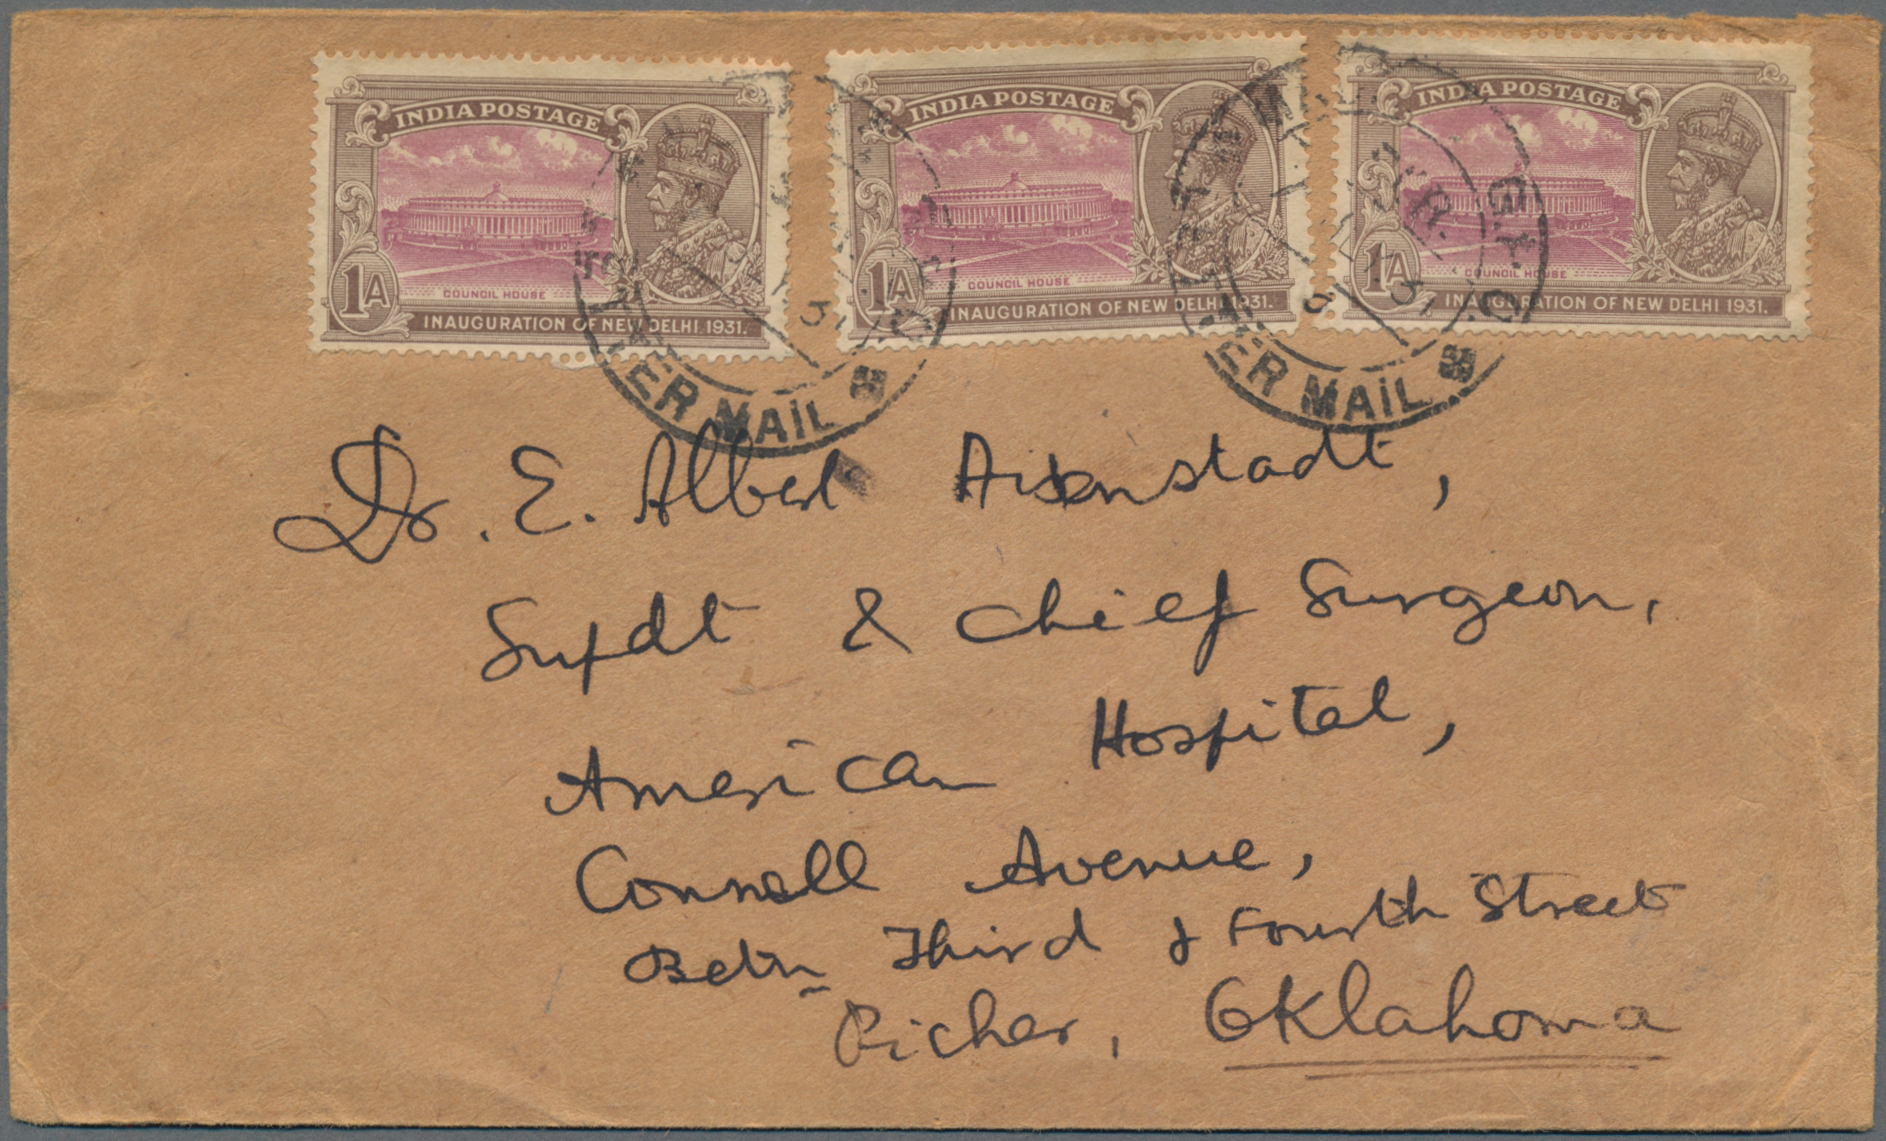 INDIA POSTAGE
1A
COUNCIL HOUSE
INAUGURATION OF NEW DELHI 1931.
INDIA POSTAGE
1A
COUNCIL HOUSE
INAUGURATION OF NEW DELHI 1931.
INDIA POSTAGE
1A
COUNCIL HOUSE
INAUGURATION OF NEW DELHI 1931.
TTER MAIL
31
TER MAIL
31
Dr. E. Albert Aisenstadt,
Supdt & Chief Surgeon,
American Hospital,
Connell Avenue,
Betn Third & Fourth Street
Picher, Oklahoma